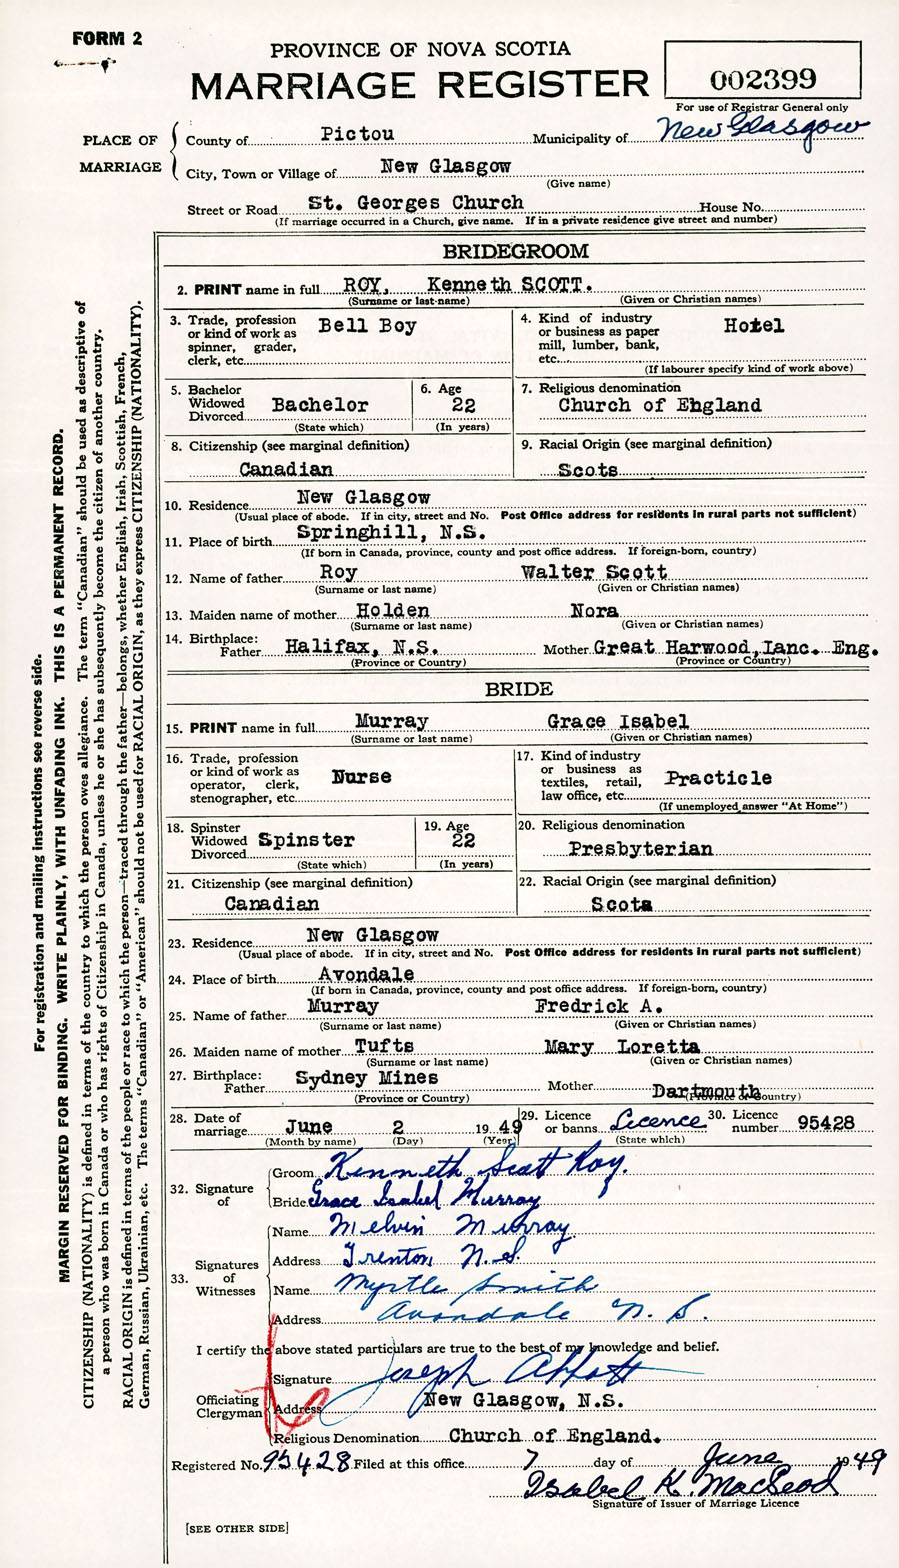 FORM 2
PROVINCE OF NOVA SCOTIA
MARRIAGE REGISTER
002399
For use of Registrar General only
PLACE OF MARRIAGE
County of Pictou Municipality of New Glasgow
City, Town or Village of New Glasgow
(Give name)
Street or Road St. Georges Church House No.
(If marriage occurred in a Church, give name. If in a private residence give street and number)
BRIDEGROOM
2. PRINT name in full ROY, Kenneth SCOTT.
(Surname or last name) (Given or Christian names)
3. Trade, profession or kind of work as spinner, grader, clerk, etc. Bell Boy
4. Kind of industry or business as paper mill, lumber, bank, etc. Hotel
(If labourer specify kind of work above)
5. Bachelor Widowed Divorced Bachelor
(State which)
6. Age 22
(In years)
7. Religious denomination
Church of England
8. Citizenship (see marginal definition)
Canadian
9. Racial Origin (see marginal definition)
Scots
10. Residence New Glasgow
(Usual place of abode. If in city, street and No. Post Office address for residents in rural parts not sufficient)
11. Place of birth Springhill, N.S.
(If born in Canada, province, county and post office address. If foreign-born, country)
12. Name of father Roy Walter Scott
(Surname or last name) (Given or Christian names)
13. Maiden name of mother Holden Nora
(Surname or last name) (Given or Christian names)
14. Birthplace: Father Halifax, N.S. Mother Great Harwood, Lanc. Eng.
(Province or Country) (Province or Country)
BRIDE
15. PRINT name in full Murray Grace Isabel
(Surname or last name) (Given or Christian names)
16. Trade, profession or kind of work as operator, clerk, stenographer, etc. Nurse
17. Kind of industry or business as textiles, retail, law office, etc. Practicle
(If unemployed answer "At Home")
18. Spinster Widowed Divorced Spinster
(State which)
19. Age 22
(In years)
20. Religious denomination
Presbyterian
21. Citizenship (see marginal definition)
Canadian
22. Racial Origin (see marginal definition)
Scots
23. Residence New Glasgow
(Usual place of abode. If in city, street and No. Post Office address for residents in rural parts not sufficient)
24. Place of birth Avondale
(If born in Canada, province, county and post office address. If foreign-born, country)
25. Name of father Murray Fredrick A.
(Surname or last name) (Given or Christian names)
26. Maiden name of mother Tufts Mary Loretta
(Surname or last name) (Given or Christian names)
27. Birthplace: Father Sydney Mines Mother Dartmouth
(Province or Country) (Province or Country)
28. Date of marriage June 2 1949
(Month by name) (Day) (Year)
29. Licence or banns Licence
(State which)
30. Licence number 95428
32. Signature of
Groom Kenneth Scott Roy.
Bride Grace Isabel Murray
33. Signatures of Witnesses
Name Melvin Murray
Address Trenton, N.S.
Name Myrtle Smith
Address Avondale N.S.
I certify the above stated particulars are true to the best of my knowledge and belief.
Officiating Clergyman
Signature Joseph Abbott
Address New Glasgow, N.S.
Religious Denomination Church of England.
Registered No. 95428 Filed at this office 7 day of June 1949
Isabel K. MacLeod
Signature of Issuer of Marriage Licence
[SEE OTHER SIDE]
For registration and mailing instructions see reverse side.
MARGIN RESERVED FOR BINDING. WRITE PLAINLY, WITH UNFADING INK. THIS IS A PERMANENT RECORD.
CITIZENSHIP (NATIONALITY) is defined in terms of the country to which the person owes allegiance. The term "Canadian" should be used as descriptive of
a person who was born in Canada or who has rights of Citizenship in Canada, unless he or she has subsequently become the citizen of another country.
RACIAL ORIGIN is defined in terms of the people or race to which the person—traced through the father—belongs, whether English, Irish, Scottish, French,
German, Russian, Ukrainian, etc. The terms "Canadian" or "American" should not be used for RACIAL ORIGIN, as they express CITIZENSHIP (NATIONALITY).